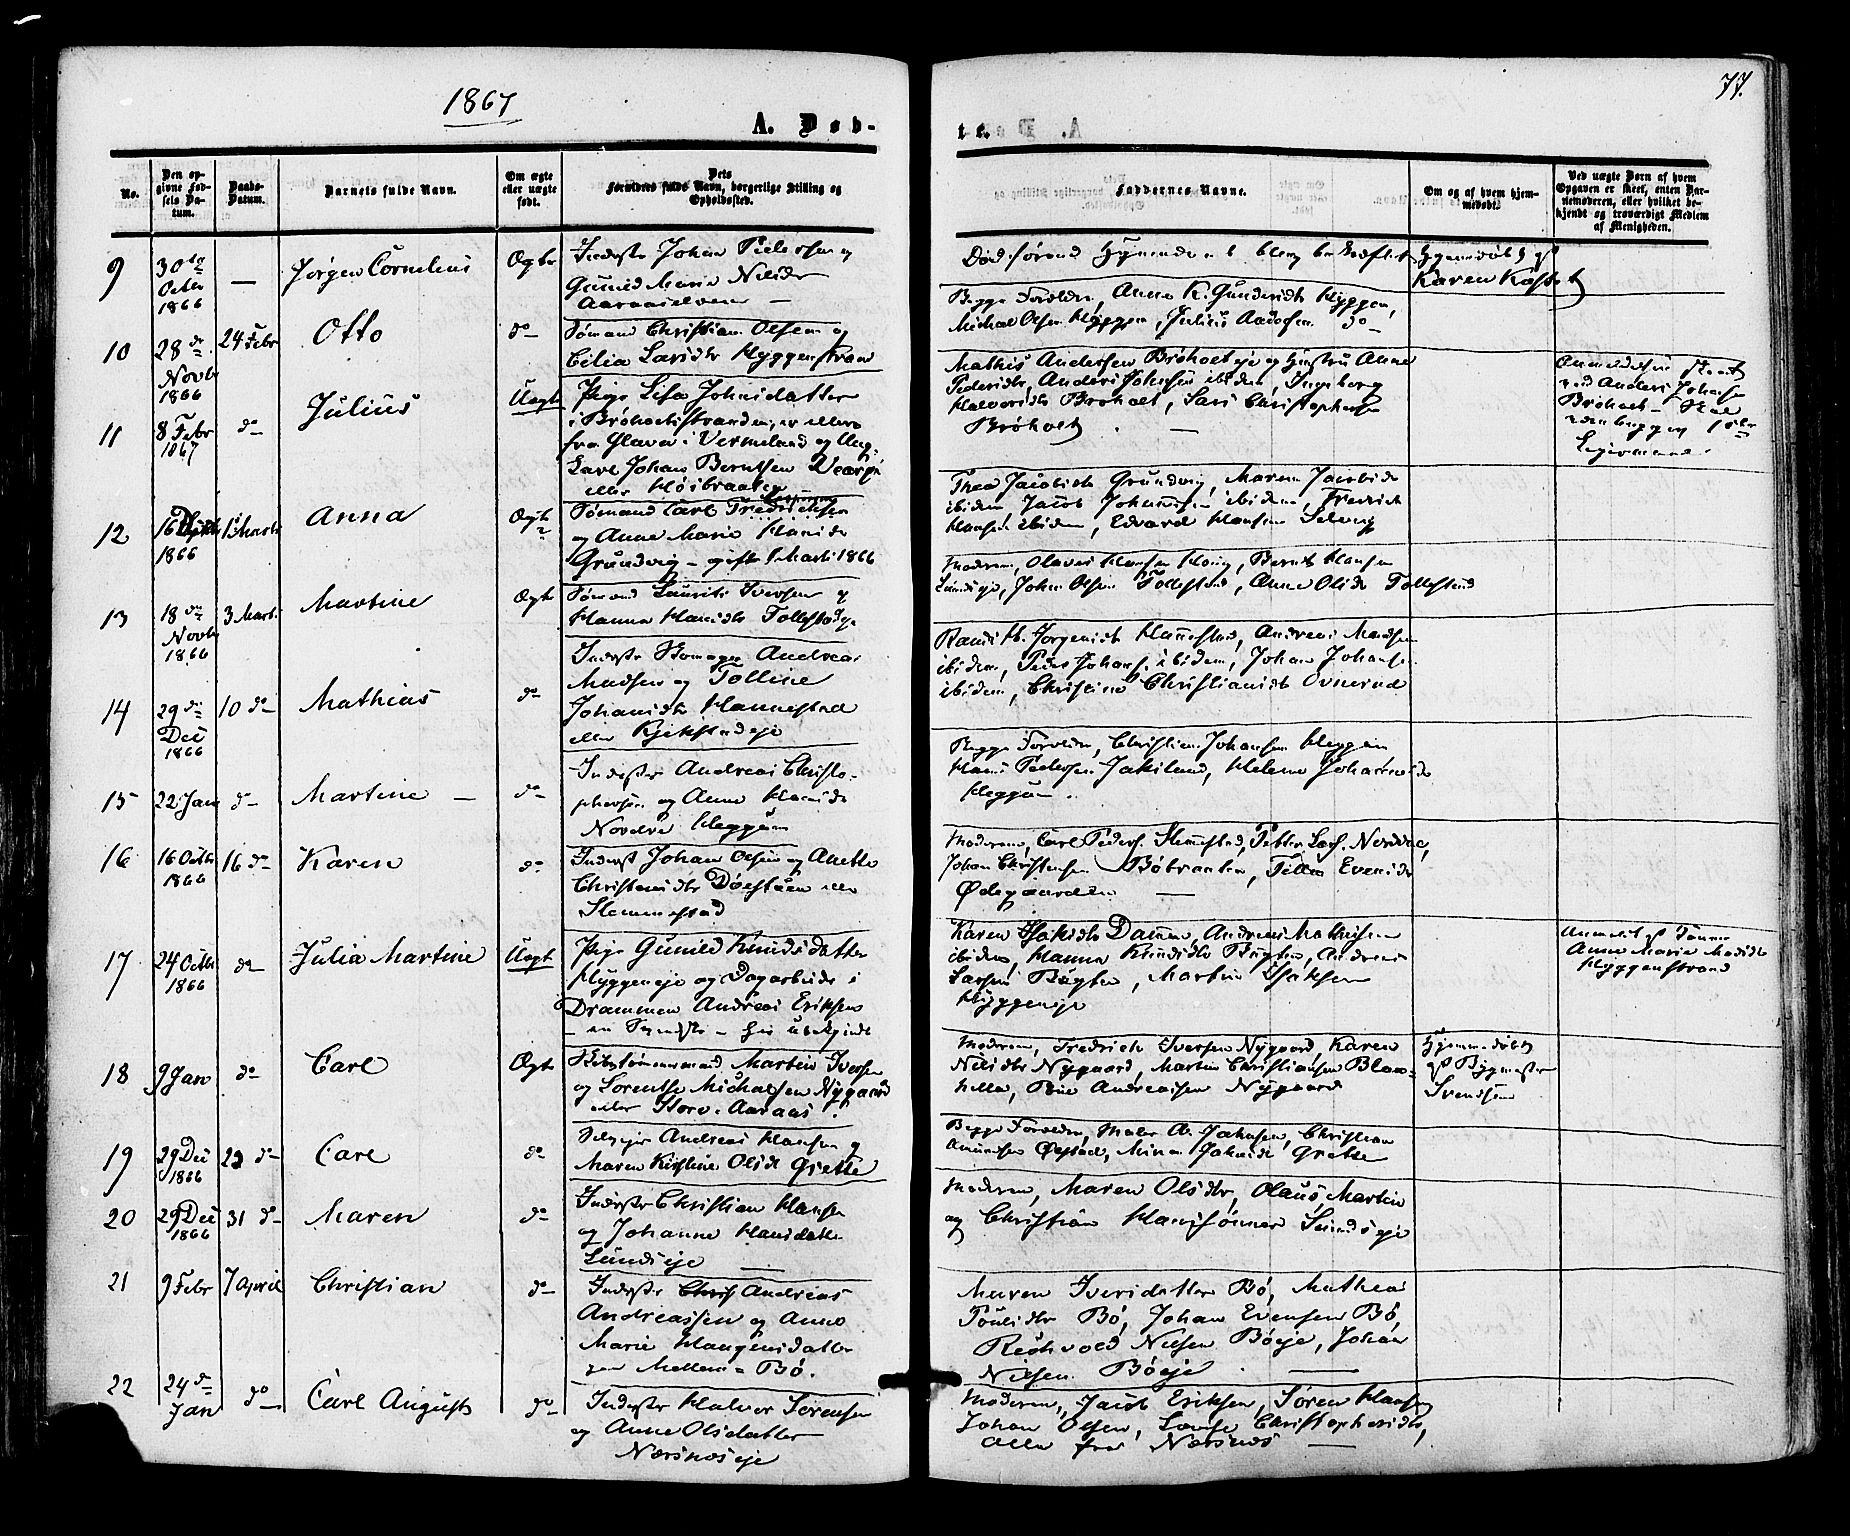 1867
77.
A. Døb-
te.
No.
Den opgivne Fødsels Datum.
Daabs-Datum.
Barnets fulde Navn.
Om ægte eller uægte født.
Forældres fulde Navn, borgerlige Stilling og Opholdssted.
Faddernes Navne.
Om og af hvem hjemmedøbt.
Ved uægte Børn af hvem Opgaven er skeet, enten Barnemoderen, eller hvilket bekjendt og troværdigt Medlem af Menigheden.
9
30
Octbr
1866
—
Jørgen Cornelius
Ægte
Inderste Johan Pedersen og
Gunild Marie Nilsdr
Karen
10
28 de
Novbr
1866
24 Febr
Otto
do
Sømand Christian Olsen og
Cilia Larsdtr Hyggenstrand
Begge Forældre, Anne K. Gundersdtr Hyggen,
Michael Olsen Hyggen, Julius do
11
8 Febr
1867
do
Julius
Uægte
Pige Lisa Johnsdatter
i Brøholtstranden, er ellers
fra Glava i Vermeland og Ung.
Carl Johan Berntsen
eller Høibraaten
Mathis Andersen Brøholteje og Hustru Anne
Pedersdtr, Anders Johnsen ibidem, Ingeborg
Halvorsdtr Brøholt, Lars Christophersen
Brøholt —
ved Anders Johnsen
Brøholt
12
16
1866
1 Marts
Anna
Ægte
Sømand Carl Fredriksen
og Anne Marie Hansdr
Grundvig — gift Marts 1866
Thea Jacobsdtr Grundvig, Maren Jacobsdr
ibidem Jacob Johannesen ibidem, Fredrik
Hansen ibidem, Edvard Hansen
13
18 de
Novbr
1866
3 Marts
Martine
Ægte
Sømand Laurits Iversen og
Hanna Hansdtr Follestadeje
Moderen, Olaves Hansen Høug, Bernt Hansen
Lundseje, Johan Olsen Follestad, Anne Olsdr Follestad
14
29 de
Dec
1866
10 do
Mathias
do
Inderste Andreas
Madsen og Tolline
Johansdtr Hannestad
eller Kjekstadeje
Jørgensdtr Hannestad, Andreas Madsen
ibidem, Peder Johans. ibidem, Johan Johansen
ibidem, Christine Christiansdtr Ovnerud
15
22 Jan
do
Martine —
do
Inderste Andreas Christo-
phersen og Anne Hansdr
Heggum
Begge Forældre, Christian Johansen Heggum
Hans Pedersen Jakslund, Helene Johannesdr
Heggum.
16
16 Octbr
1866
16 do
Karen
do
Inderst Johan Olsen og Anette
Christensdtr Dølstuen eller
Slemmestad
Moderen, Carl Peders. Slemmestad, Petter Lars.
Johan Christensen Bøbraaten, Evensdr
Ødegaarden —
17
24 Octbr
1866
do
Julia Martine
Uægte
Pige Gunild Knudsdatter
Hyggeneje og Dagarbeider i
Drammen Andreas Eriksen
Karen Isaksdtr Dammen, Andreas Mathisen
ibidem, Hanna Knudsdtr Bugten, Andreas
Larsen Bugten, Martin Isaksen
Hyggeneje
Anmeldt af
Anne Marie Madsdr
Hyggenstrand
18
9 Jan
do
Carl
Ægte
Skibstømmermand Martin Iversen
og Lorentse Michalsen Nygaard
eller Store-Aaraas
Moderen, Fredrich Iversen Nygaard, Karen
Nilsdtr Nygaard, Martin Christiansen Blak-
Andreassen Nygaard
Hjemmedøbt
af Bygmester
Svendsen
19
29 Dec
1866
do
Carl
do
Selvejer Andreas Hansen og
Maren Kirstine Olsdr Grette
Begge Forældre, Maler A. Jakobsen, Christian
Amundsen Ølstad, Grette
20
29 Dec
1866
31 do
Maren
do
Inderste Christian Hansen
og Johanne Hansdatter
Lundseje —
Moderen, Maren Olsdtr, Olaus Martin
og Christian Hanssønner Lundseje
21
9 Febr
7 April
Christian
do
Inderste Andreas
Andreassen og Anne
Marie Haugensdatter
Mellem-Bø.
Maren Iversdatter Bø, Mathea
Poulsdtr Bø, Johan Evensen Bø,
Nilsen Bøeje, Johan
Nilsen Bøeje —
22
24 de
Jan
do
Carl August
do
Inderste Halvor Sørensen
og Anne Olsdatter
Nærsnæseje
Moderen, Jacob Eriksen, Søren Hansen
Johan Olsen, Lovise Christophersdtr,
alle fra Nærsnæs —